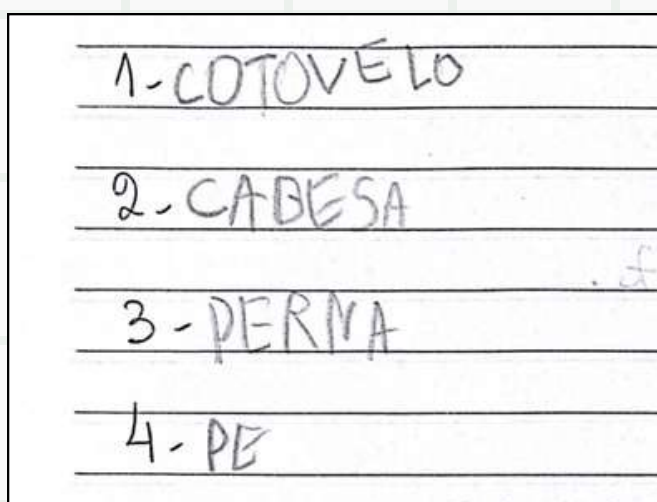 1-COTOVELO
2-CABESA
3-PERNA
4-PE